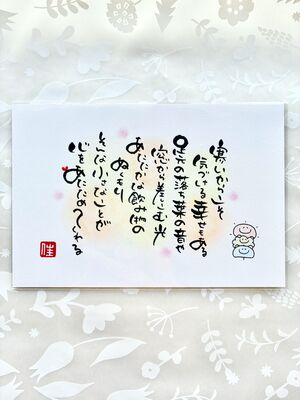 寒いからこそ
気づける幸せもある
足元の落ち葉の音や
窓から差しこむ光
あたたかな飲み物の
ぬくもり
そんな小さなことが
心をあたためてくれる
佳